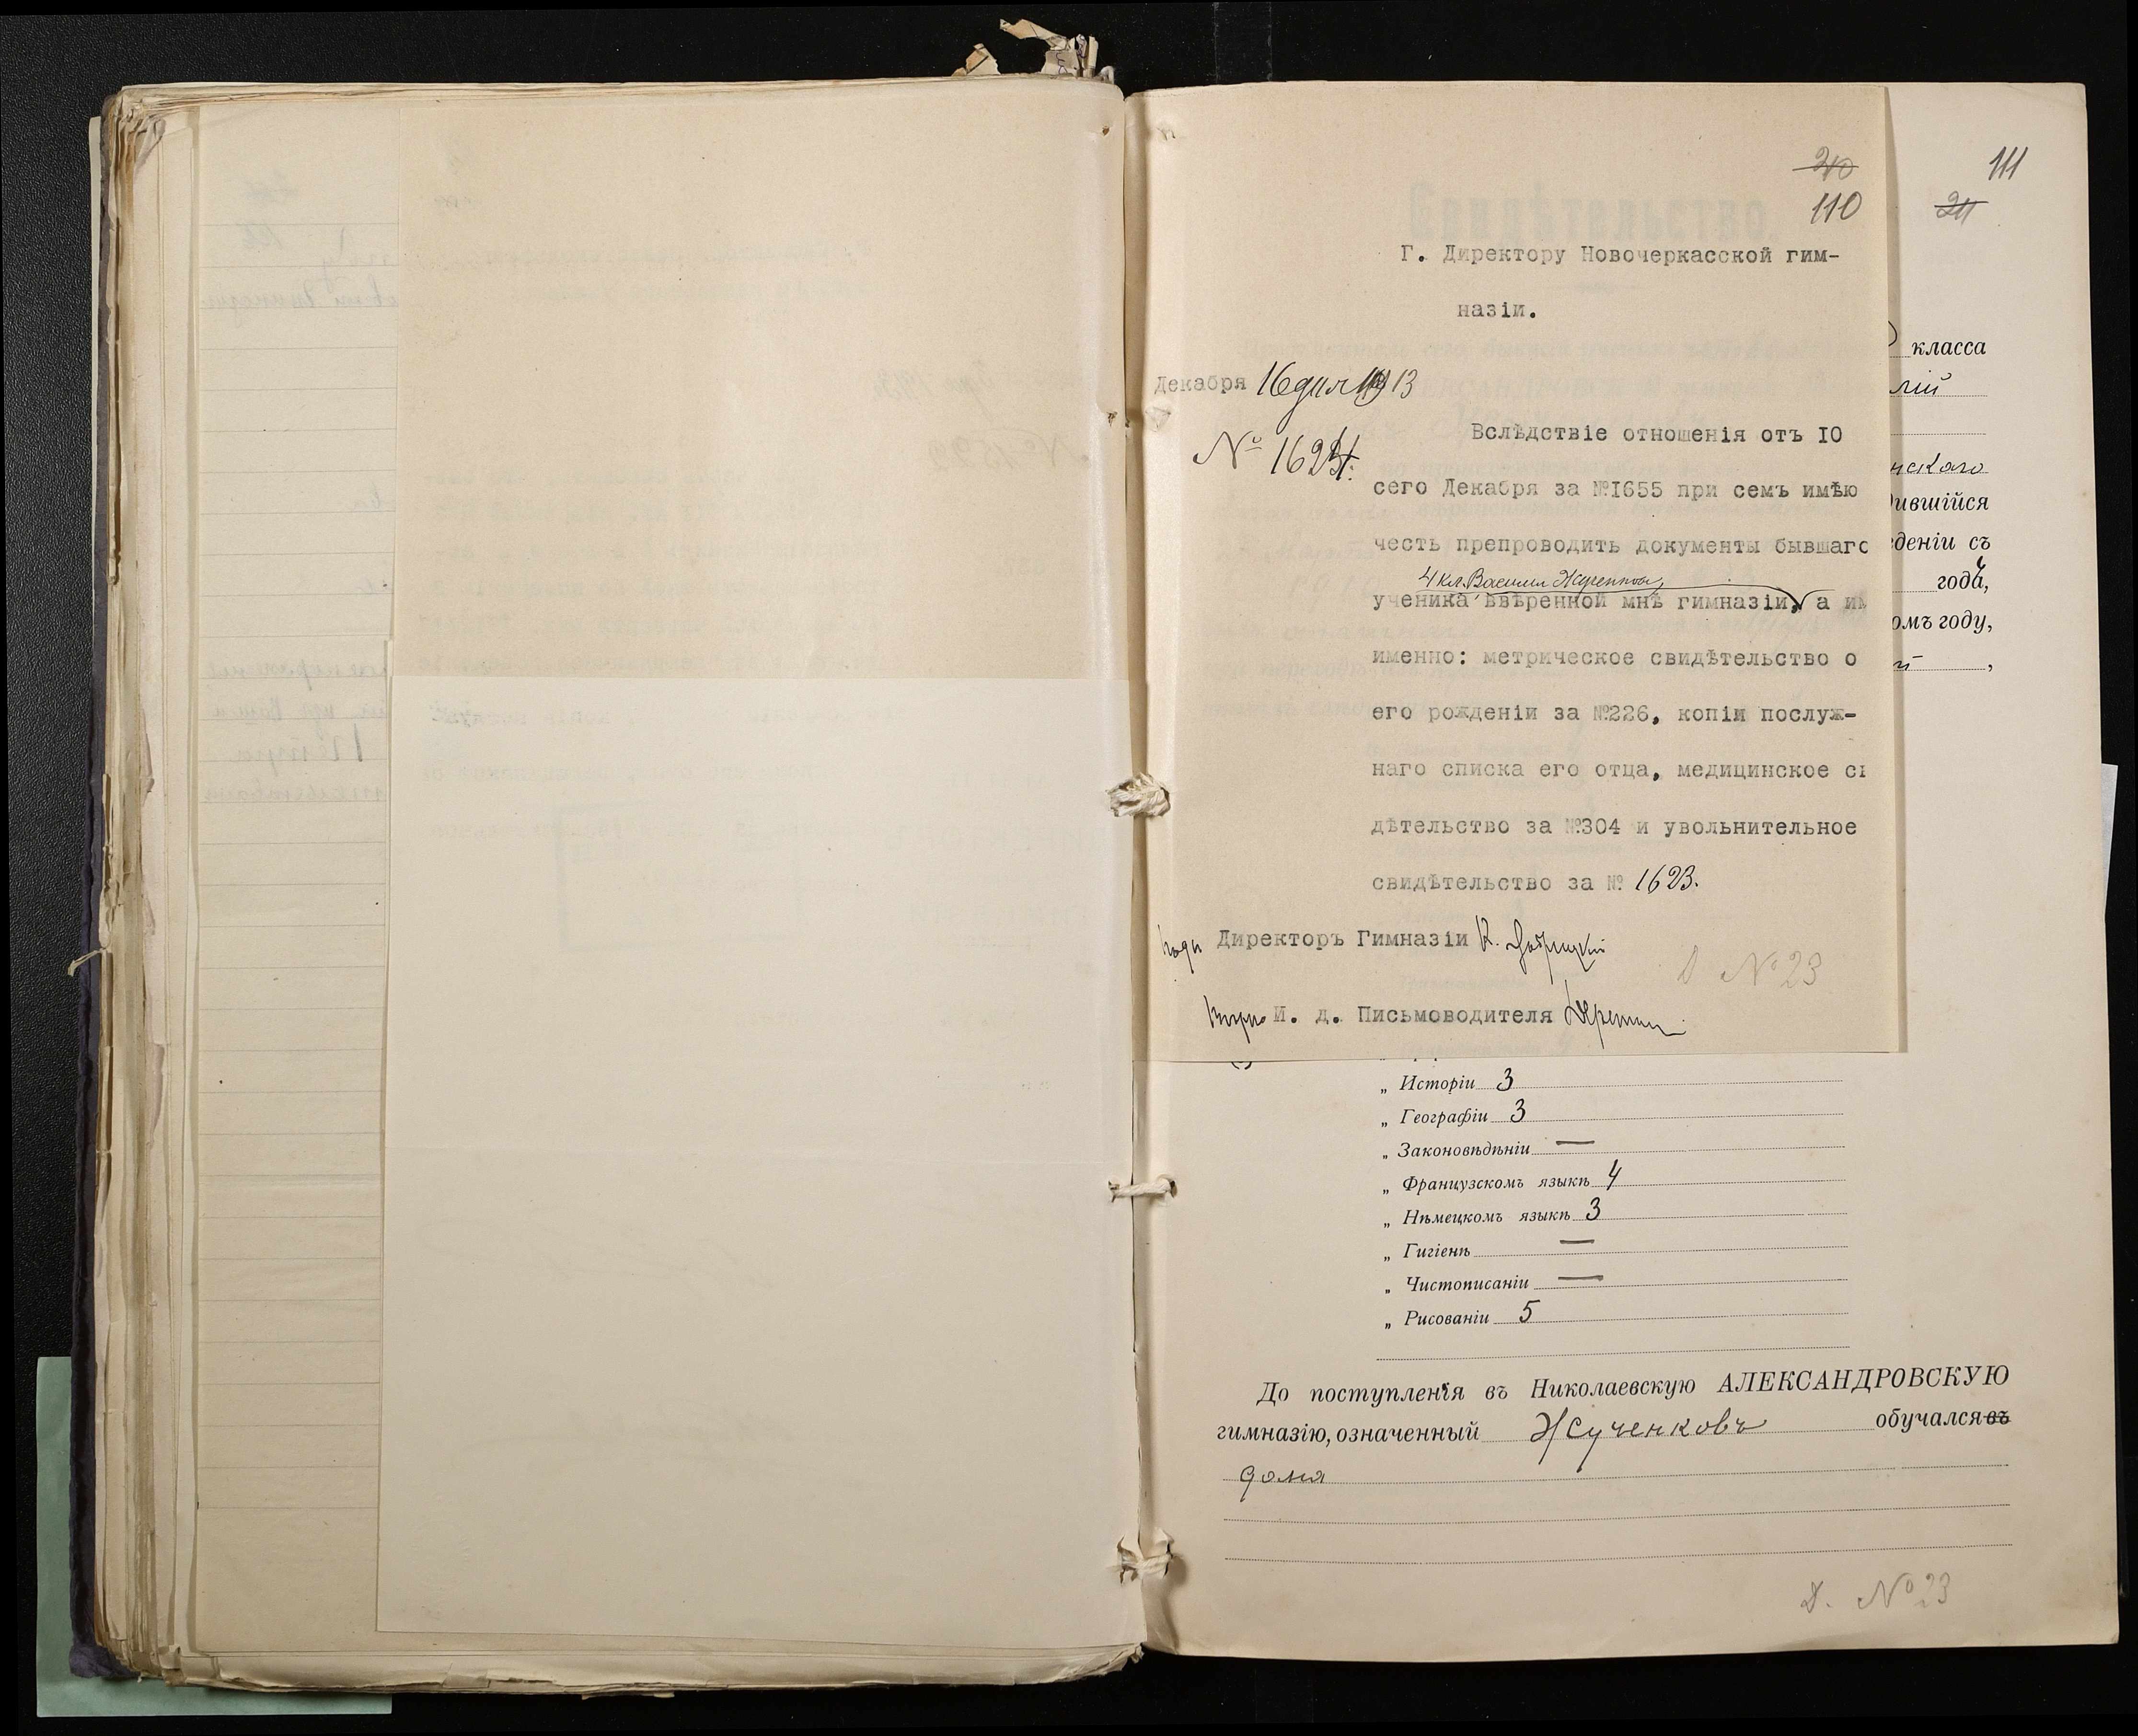 240
110
Г. Директору Новочеркасской гим-
назіи.
Декабря 16 дня 1913
№ 1624.
Вслѣдствіе отношенія отъ 10
сего Декабря за №1655 при семъ имѣю
честь препроводить документы бывшаго
4 кл. Василия Жученкова,
ученика ввѣренной мнѣ гимназіи, а им
именно: метрическое свидѣтельство о
его рожденіи за №226, копіи послуж-
наго списка его отца, медицинское св
дѣтельство за №304 и увольнительное
свидѣтельство за № 1623.
Директоръ Гимназіи К.
И. д. Письмоводителя
№ 23
111
класса
лій
нскаго
ившійся
деніи съ
года,
омъ году,
й ,
„ Исторіи 3
„ Географіи 3
„ Законовѣдѣніи —
„ Французскомъ языкѣ 4
„ Нѣмецкомъ языкѣ 3
„ Гигіенѣ —
„ Чистописаніи —
„ Рисованіи 5
До поступленія въ Николаевскую АЛЕКСАНДРОВСКУЮ
гимназію, означенный Жученковъ обучался въ
дома
Д. № 23